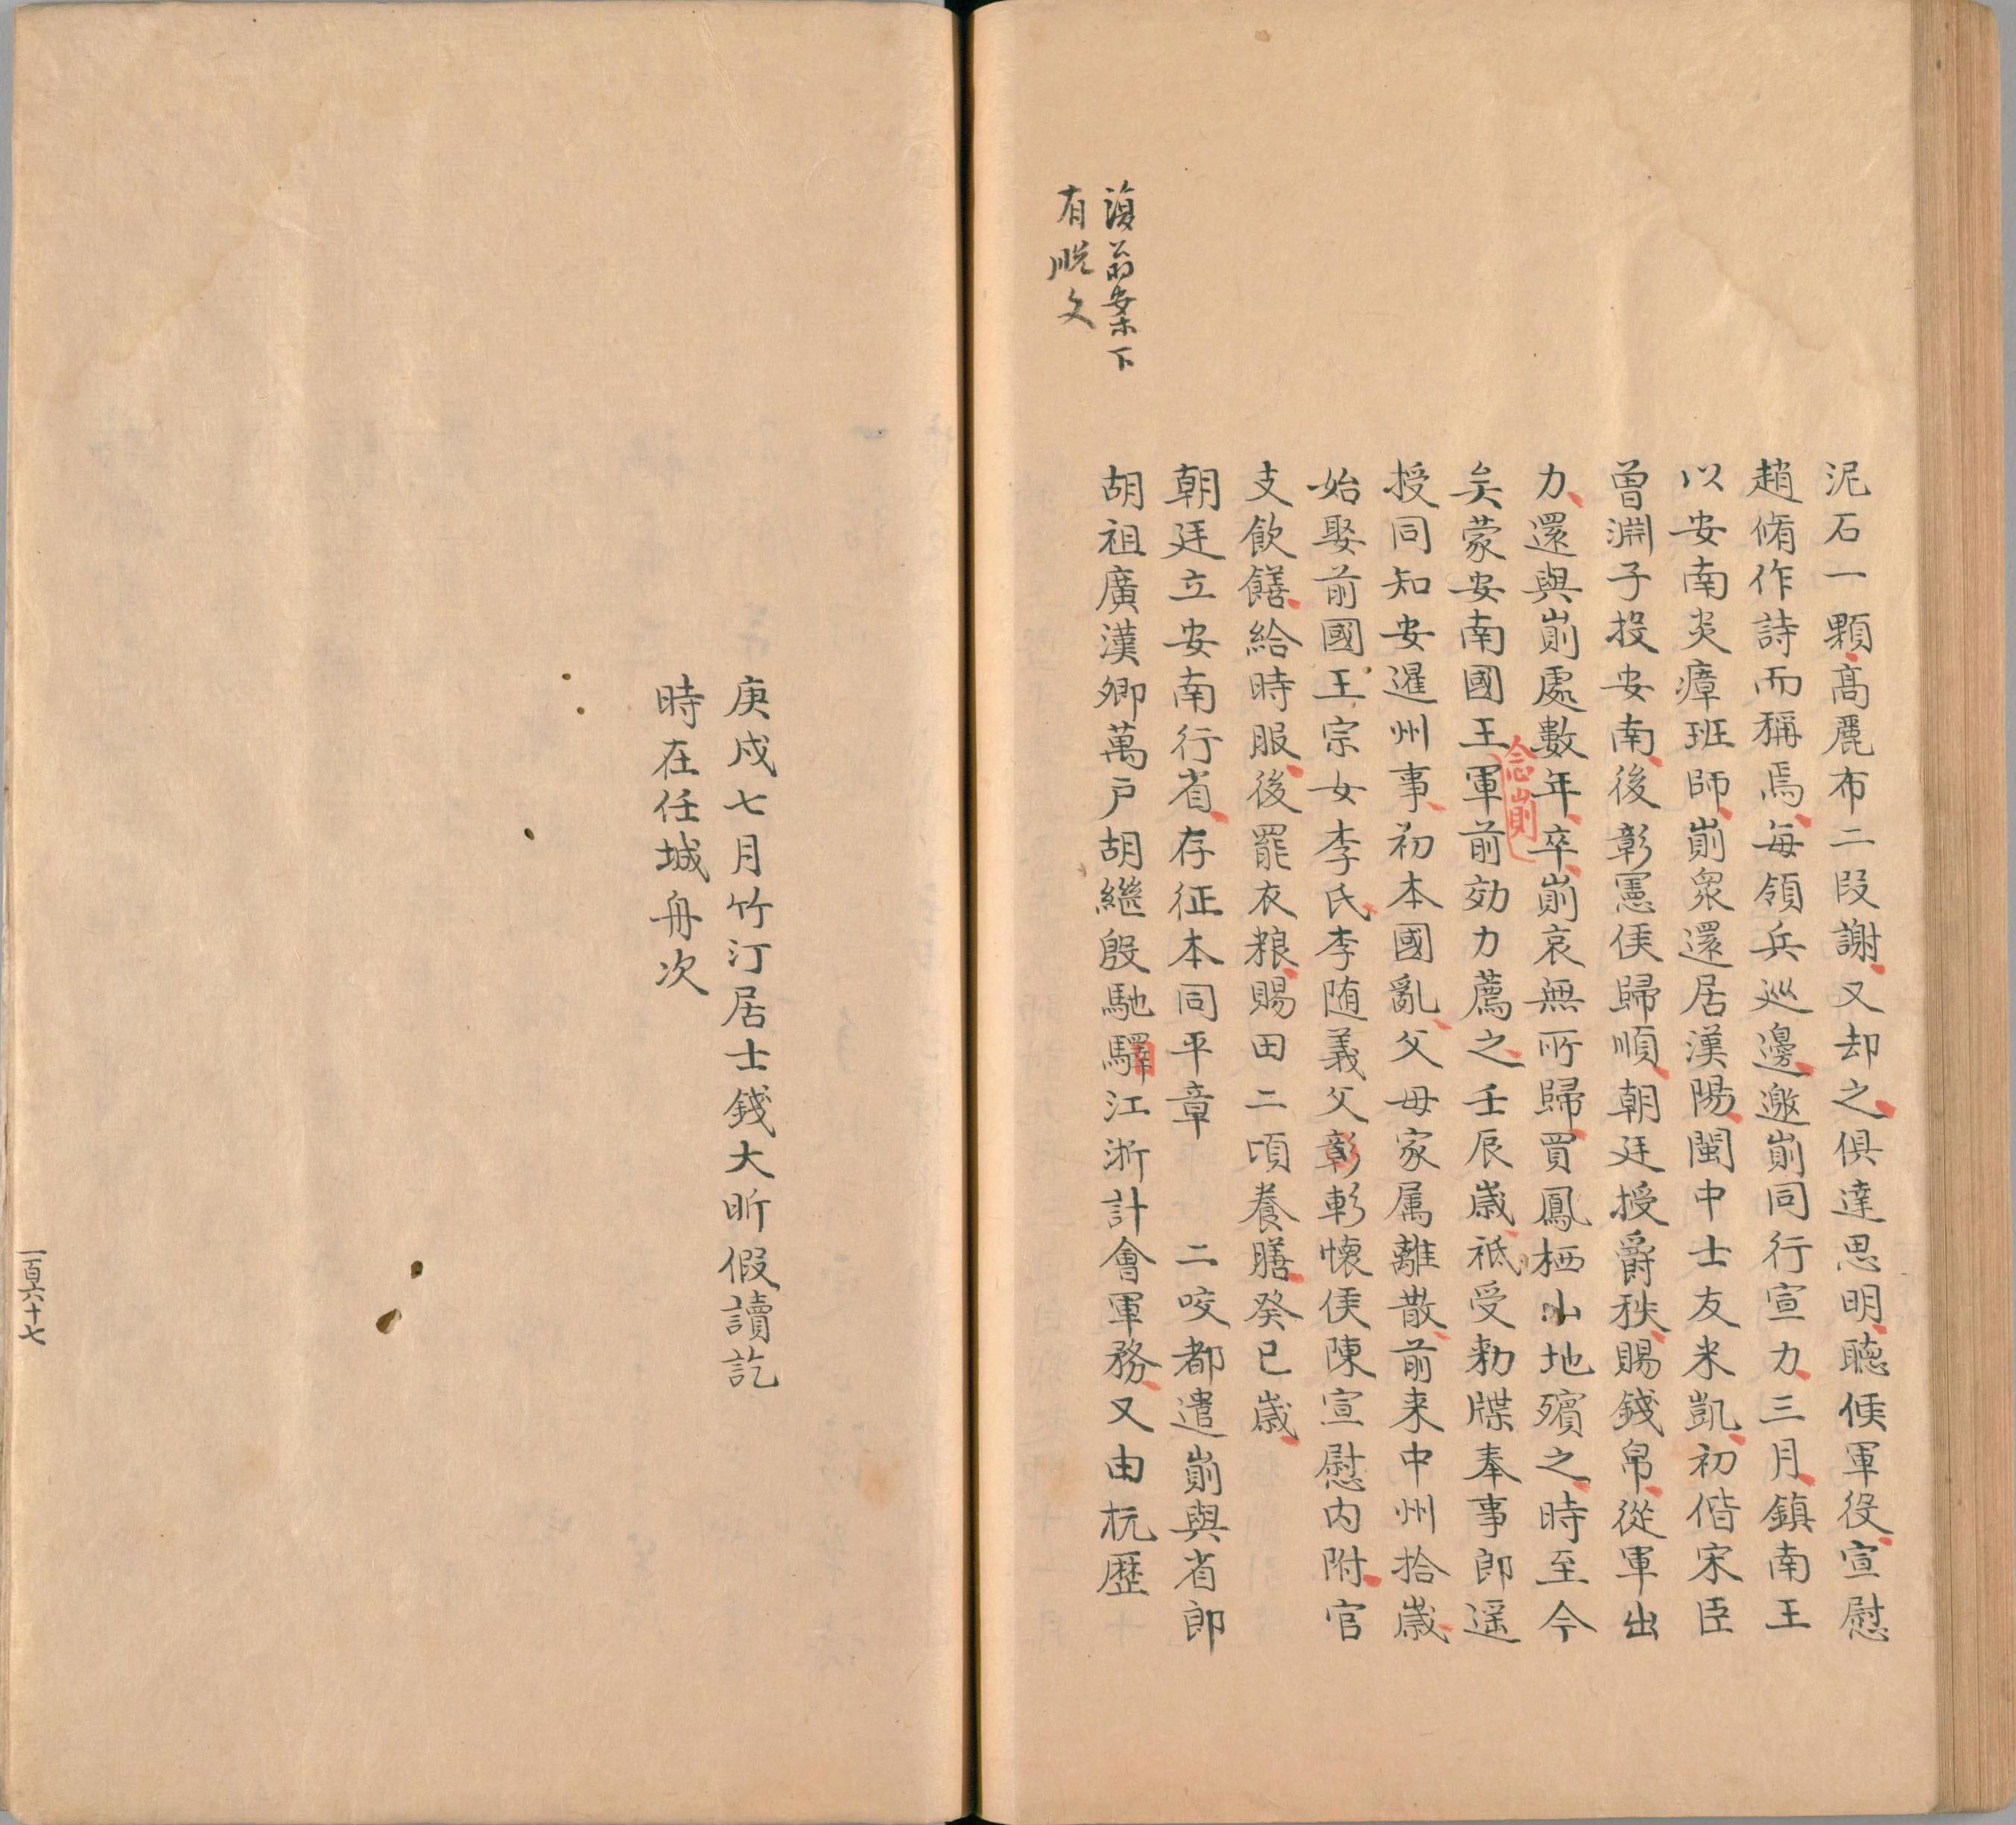 泥石一顆髙麗布二段謝又却之俱達思明聼候軍役宣慰
趙脩作詩而稱焉每領兵巡邊邀崱同行宣力三月鎮南王
以安南炎瘴班師崱衆還居漢陽閩中士友米凱初偕宋臣
曾淵子投安南後彰憲侯歸順朝廷授爵秩賜錢帛從軍出
力還與崱處數年卒崱哀無所歸買鳳栖山地殯之時至今
矣蒙安南國王軍前効力薦之壬辰嵗祇受勑牒奉事郎遥
念崱
授同知安暹州事初本國亂父母家属離散前来中州拾嵗
始娶前國王宗女李氏李随義父彰彰懷侯陳宣慰内附官
支飲饍給時服後罷衣粮賜田二頃養膳癸巳嵗
朝廷立安南行省存征本同平章 二咬都遣崱與省郎
胡祖廣漢卿萬戸胡繼殷馳驛江浙計會軍務又由杭歷
復翁案下
有脱文
庚戍七月竹汀居士錢大昕假讀訖
時在任城舟次
一百六十七